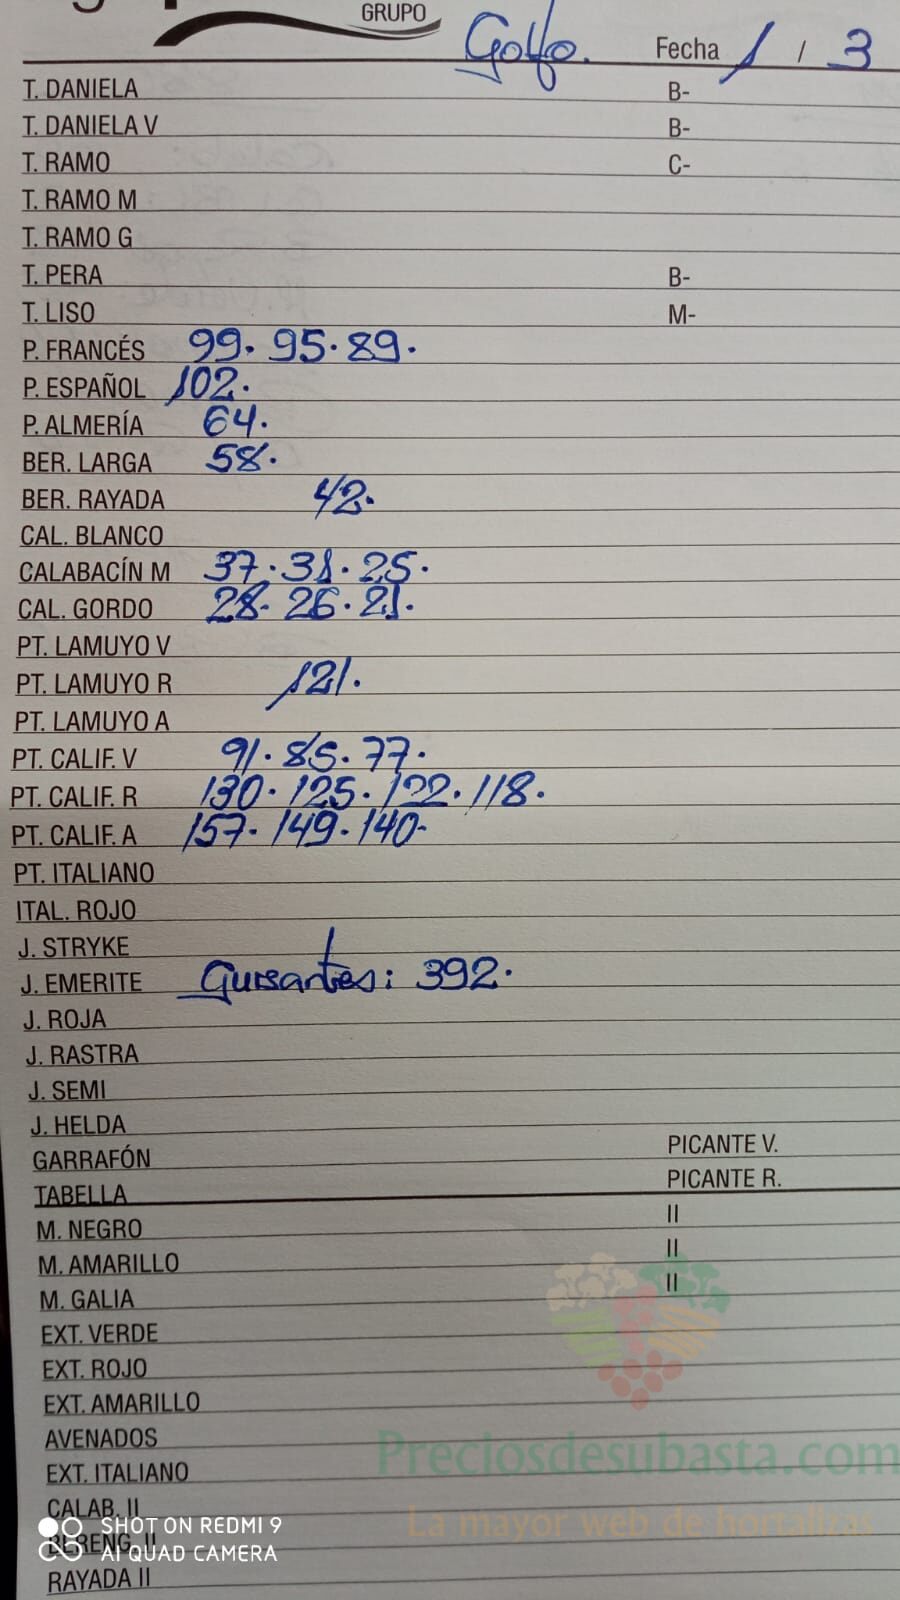 GRUPO
Golfo. Fecha 1 / 3
T. DANIELA B-
T. DANIELA V B-
T. RAMO C-
T. RAMO M
T. RAMO G
T. PERA B-
T. LISO M-
P. FRANCÉS 99. 95. 89.
P. ESPAÑOL 102.
P. ALMERÍA 64.
BER. LARGA 58.
BER. RAYADA 42.
CAL. BLANCO
CALABACÍN M 37. 31. 25.
CAL. GORDO 28. 26. 21.
PT. LAMUYO V
PT. LAMUYO R 121.
PT. LAMUYO A
PT. CALIF. V 91. 85. 77.
PT. CALIF. R 130. 125. 122. 118.
PT. CALIF. A 157. 149. 140.
PT. ITALIANO
ITAL. ROJO
J. STRYKE
J. EMERITE Guisantes: 392.
J. ROJA
J. RASTRA
J. SEMI
J. HELDA
GARRAFÓN PICANTE V.
TABELLA PICANTE R.
M. NEGRO II
M. AMARILLO II
M. GALIA II
EXT. VERDE
EXT. ROJO
EXT. AMARILLO
AVENADOS
Preciosdesubasta.com
EXT. ITALIANO
CALAB. II
La mayor web de hortalizas
SHOT ON REDMI 9
BERENG. II
AI QUAD CAMERA
RAYADA II